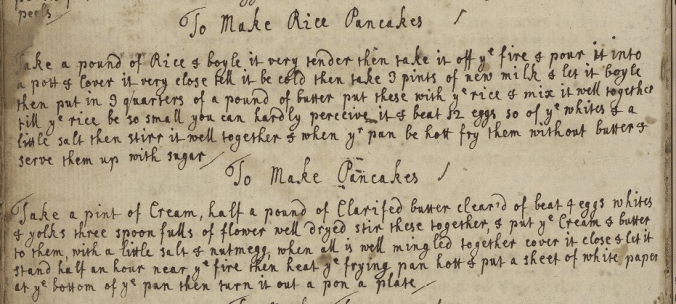 peels
To Make Rice Pancakes
Take a pound of Rice & boyle it very tender then take it off yᵉ fire & pour it into
a pott & Cover it very close tell it be cold then take 3 pints of new milk & let it boyle
then put in 3 quarters of a pound of butter put these with yᵉ rice & mix it well together
till yᵉ rice be so small you can hardly perceive it & beat 12 eggs so of yᵉ whites & a
little salt then stirr it well together & when yʳ pan be hott fry them without butter &
serve them up with sugar
To Make Pancakes
Take a pint of Cream, half a pound of Clarifed butter clear'd of beat 4 eggs whites
& yolks three spoon fulls of flower well dryed stir these together, & put yᵉ Cream & butter
to them, with a little salt & nutmegg, when all is well mingled together cover it close & let it
stand half an hour near yᵉ fire then heat yᵉ frying pan hott & put a sheet of white paper
at yᵉ bottom of yᵉ pan then turn it out a pon a plate